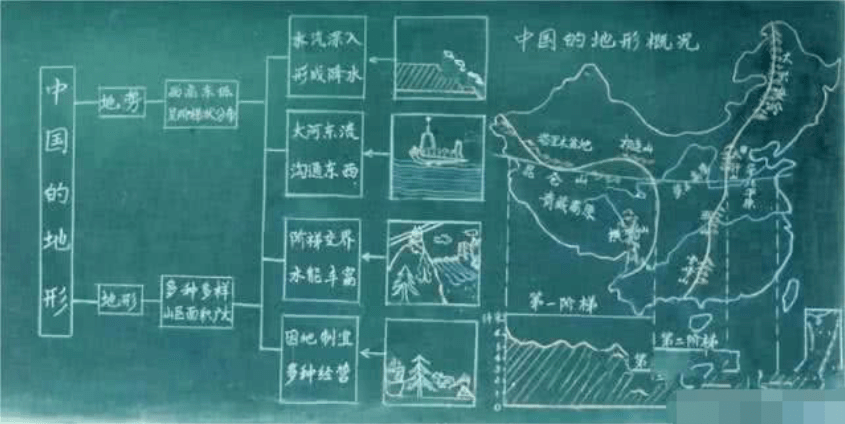 中国的地形
地势
西高东低
呈阶梯状分布
地形
多种多样
山区面积广大
水汽深入
形成降水
大河东流
沟通东西
阶梯交界
水能丰富
因地制宜
多种经营
中国的地形概况
大兴安岭
塔里木盆地
祁连山
昆仑山
青藏高原
横断山
第一阶梯
第二阶梯
第三